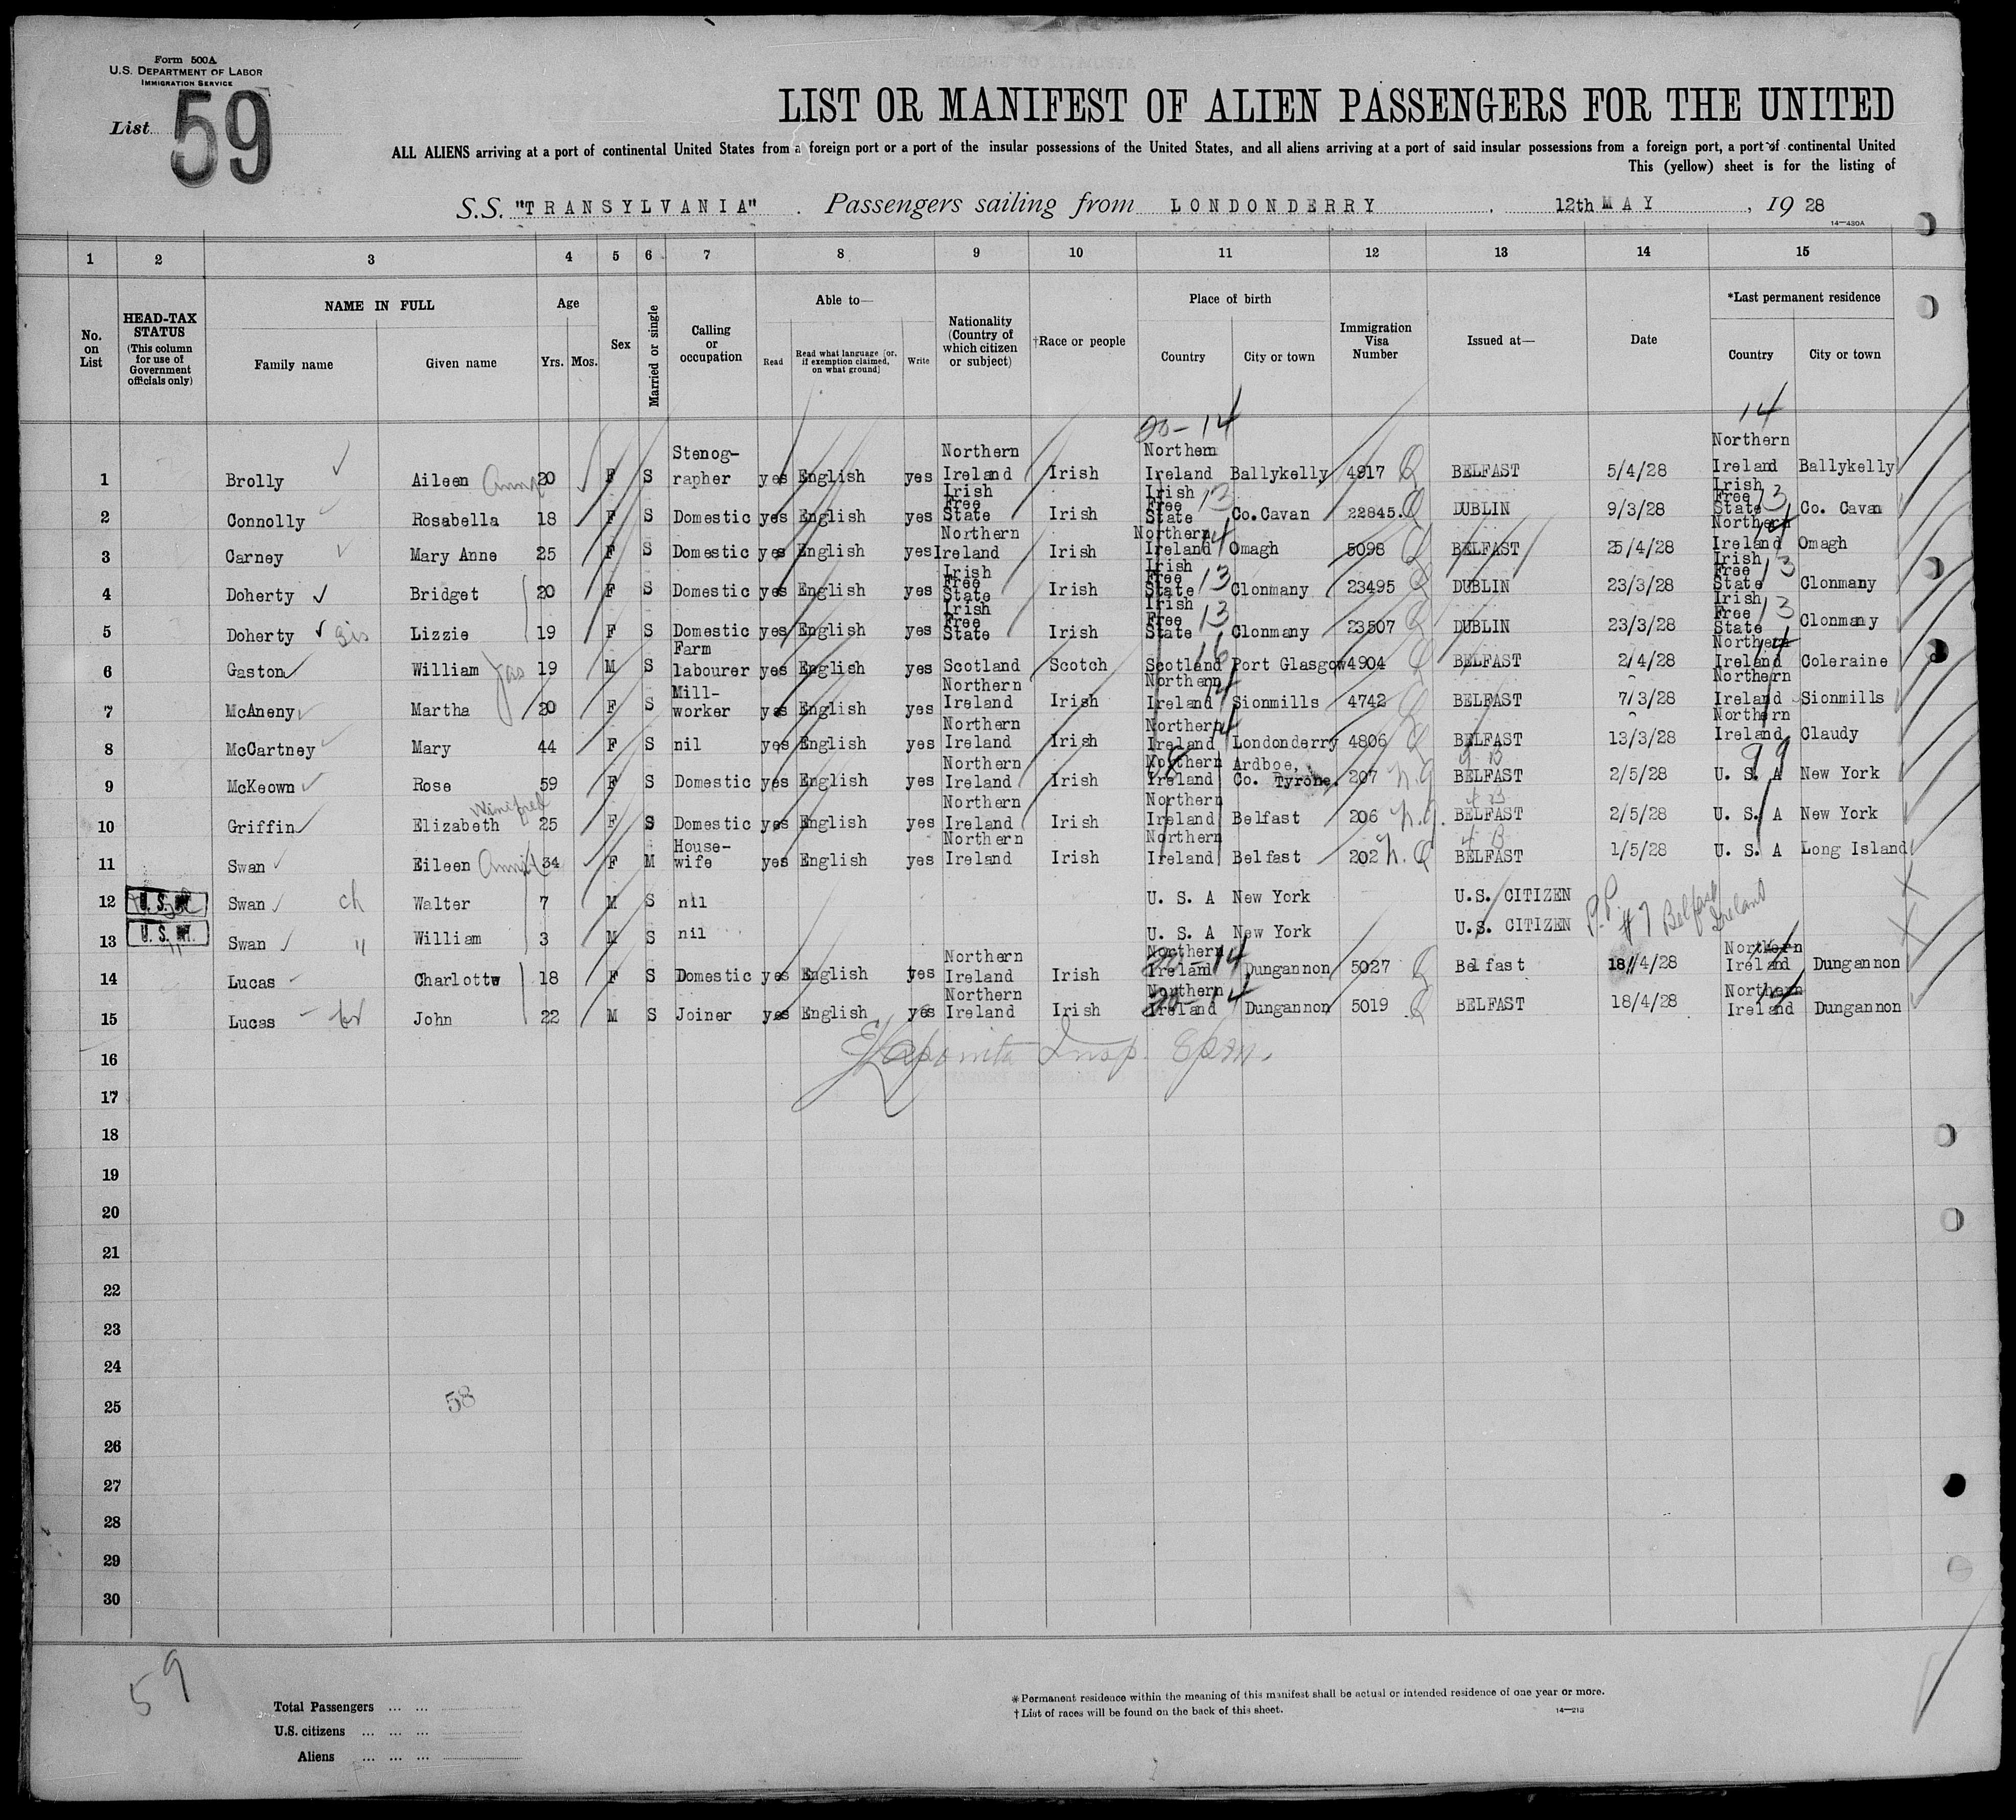 Form 500A
U.S. DEPARTMENT OF LABOR
IMMIGRATION SERVICE
List 59
LIST OR MANIFEST OF ALIEN PASSENGERS FOR THE UNITED
ALL ALIENS arriving at a port of continental United States from a foreign port or a port of the insular possessions of the United States, and all aliens arriving at a port of said insular possessions from a foreign port, a port of continental United
This (yellow) sheet is for the listing of
S.S. "TRANSYLVANIA" . Passengers sailing from LONDONDERRY . 12th MAY , 19 28
14—430A
1 2 3 4 5 6 7 8 9 10 11 12 13 14 15
No. on List
HEAD-TAX STATUS (This column for use of Government officials only)
NAME IN FULL
Family name Given name
Age
Yrs. Mos.
Sex
Married or single
Calling or occupation
Able to—
Read Read what language [or, if exemption claimed, on what ground] Write
Nationality (Country of which citizen or subject)
†Race or people
Place of birth
Country City or town
Immigration Visa Number
Issued at—
Date
*Last permanent residence
Country City or town
20-14 14
1 Brolly Aileen Anna 20 F S Stenog-rapher yes English yes Northern Ireland Irish Northern Ireland Ballykelly 4917 Q BELFAST 5/4/28 Northern Ireland Ballykelly
2 Connolly Rosabella 18 F S Domestic yes English yes Irish Free State Irish Irish Free State 13 Co.Cavan 22845. Q DUBLIN 9/3/28 Irish Free State 13 Co. Cavan
3 Carney Mary Anne 25 F S Domestic yes English yes Northern Ireland Irish Northern Ireland 14 Omagh 5098 Q BELFAST 25/4/28 Northern Ireland 14 Omagh
4 Doherty Bridget 20 F S Domestic yes English yes Irish Free State Irish Irish Free State 13 Clonmany 23495 Q DUBLIN 23/3/28 Irish Free State 13 Clonmany
5 Doherty sis Lizzie 19 F S Domestic yes English yes Irish Free State Irish Irish Free State 13 Clonmany 23507 Q DUBLIN 23/3/28 Irish Free State 13 Clonmany
6 Gaston William Jas 19 M S Farm labourer yes English yes Scotland Scotch Scotland 16 Port Glasgow 4904 Q BELFAST 2/4/28 Northern Ireland 14 Coleraine
7 McAneny Martha 20 F S Mill-worker yes English yes Northern Ireland Irish Northern Ireland 14 Sionmills 4742 Q BELFAST 7/3/28 Northern Ireland Sionmills
8 McCartney Mary 44 F S nil yes English yes Northern Ireland Irish Northern Ireland 14 Londonderry 4806 Q BELFAST 13/3/28 Northern Ireland Claudy
9 McKeown Rose 59 F S Domestic yes English yes Northern Ireland Irish Northern Ireland Ardboe, Co. Tyrone. 207 N.Q BELFAST 2/5/28 U. S. A 99 New York
10 Griffin Elizabeth Winifred 25 F S Domestic yes English yes Northern Ireland Irish Northern Ireland Belfast 206 N.Q. BELFAST 2/5/28 U. S. A New York
11 Swan Eileen Annie 34 F M House-wife yes English yes Northern Ireland Irish Northern Ireland Belfast 202 N.Q 4 B BELFAST 1/5/28 U. S. A Long Island
12 Swan ch Walter 7 M S nil U. S. A New York U.S. CITIZEN P.P. #7 Belfast Ireland
13 Swan " William 3 M S nil U. S. A New York U.S. CITIZEN
14 Lucas Charlotte 18 F S Domestic yes English yes Northern Ireland Irish Northern Ireland 20-14 Dungannon 5027 Q Belfast 18/4/28 Northern Ireland 14 Dungannon
15 Lucas br John 22 M S Joiner yes English yes Northern Ireland Irish Northern Ireland 20-14 Dungannon 5019 Q BELFAST 18/4/28 Northern Ireland 14 Dungannon
16 Insp.
17
18
19
20
21
22
23
24
25 58
26
27
28
29
30
59
Total Passengers ... ...
U.S. citizens ... ... ...
Aliens ... ... ...
* Permanent residence within the meaning of this manifest shall be actual or intended residence of one year or more.
† List of races will be found on the back of this sheet.
14—213